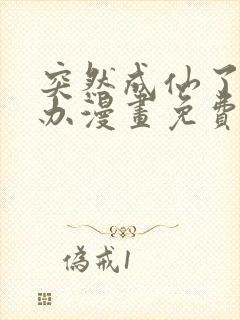 突然成仙了
办漫畫免費
偽戒1